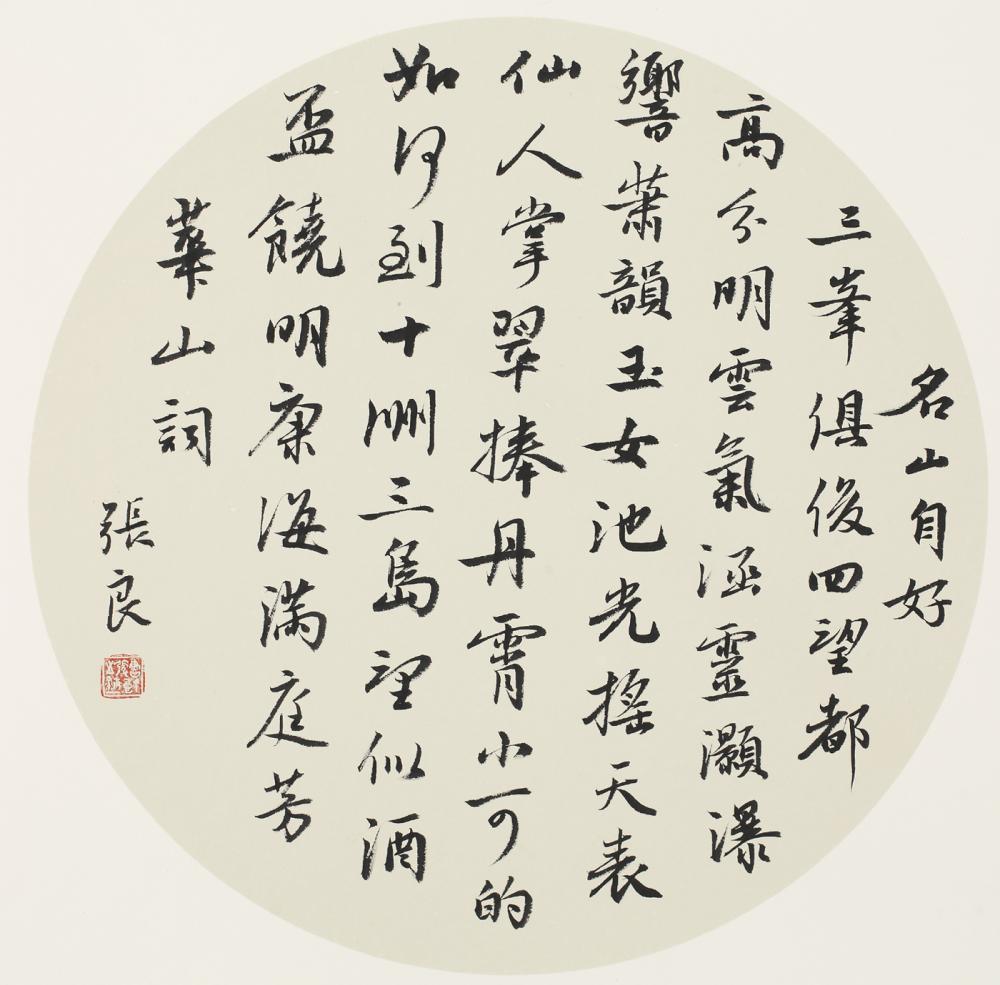 名山自好
三峯俱俊四望都
高分明雲氣涵靈灝瀑
響蕭韻玉女池光搖天表
仙人掌翠捧丹霄小可的
如何到十洲三島望似酒
盃饒明康海滿庭芳
華山詞
張良